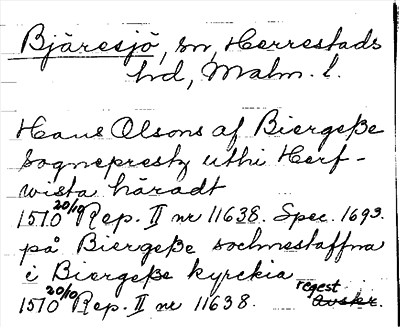 Bjäresjö, sn, Herrestads
hd, Malm. l.
Hans Olsons af Biergeße
Sognepresty uthi Herf-
wista häradt
1570 20/10 Rep. II nr 11638. Spec. 1693.
på Biergeße sochnestaffna
i Biergeße kyrckia
1570 20/10 Rep. II nr 11638. regest Avskr.